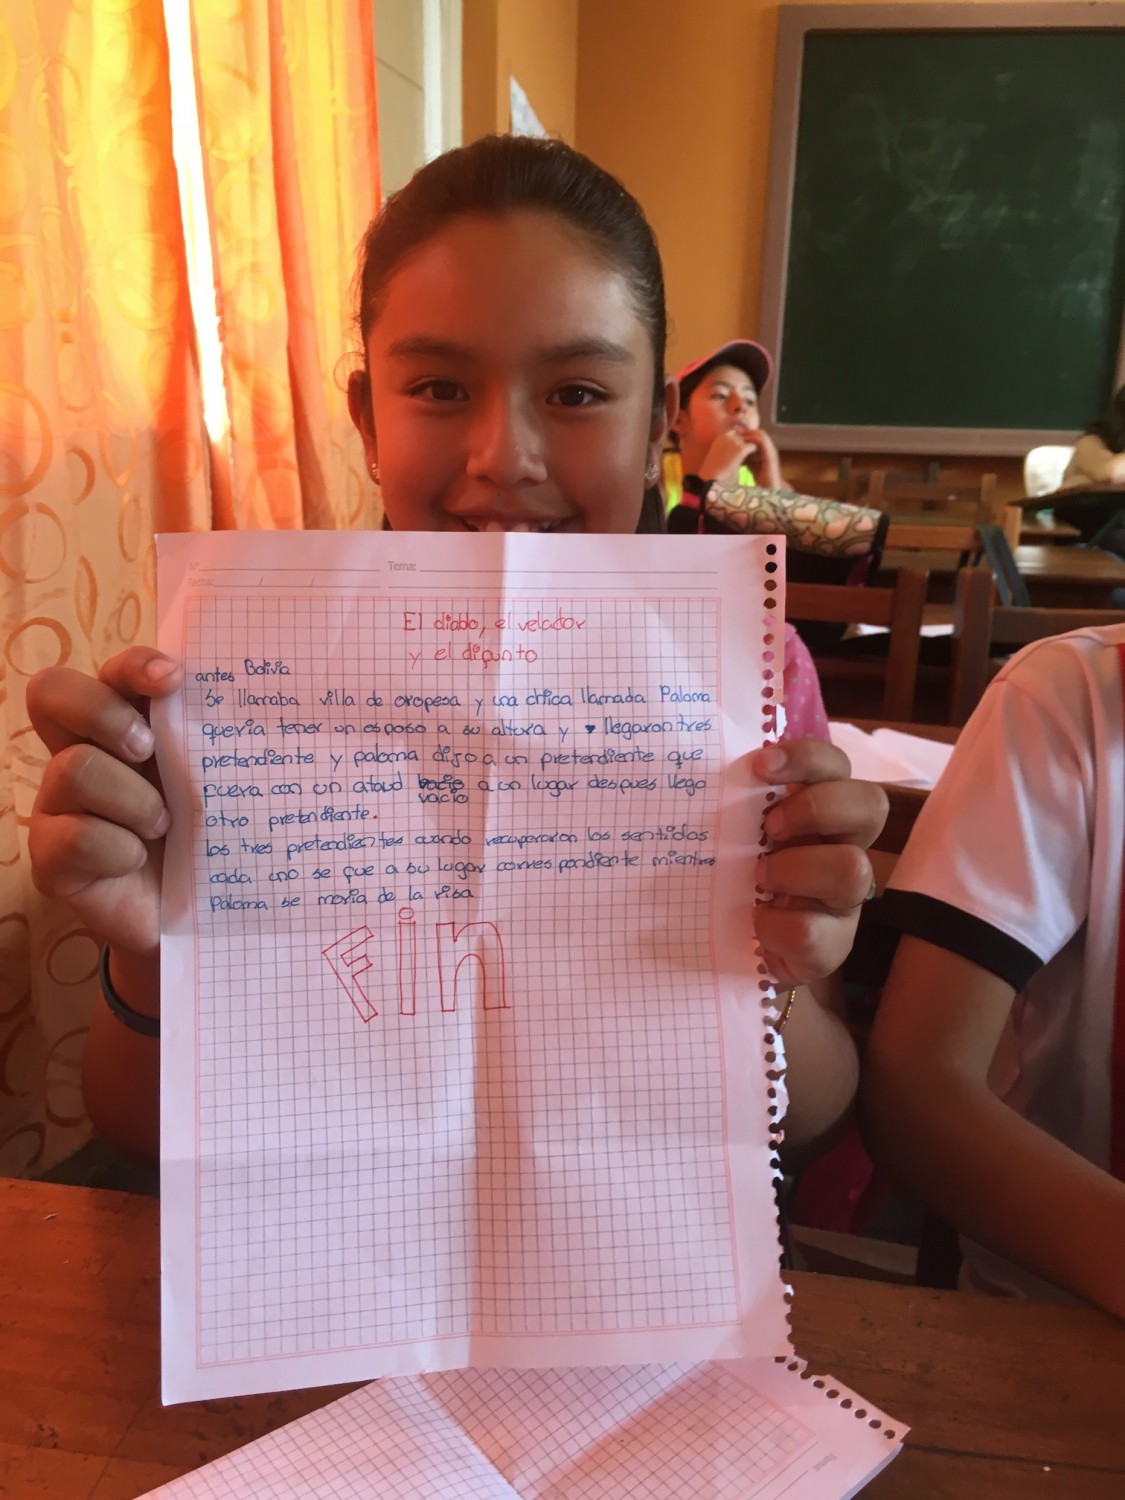 Nº
Tema:
Fecha: / /
El diablo, el velador
y el difunto
antes Bolivia
se llamaba villa de oropesa y una chica llamada Paloma
queria tener un esposo a su altura y llegaron tres
pretendiente y paloma dijo a un pretendiente que
fuera con un ataud vacio a un lugar despues llego
otro pretendiente.
los tres pretendientes cuando recuperaron los sentidos
cada uno se fue a su lugar correspondiente mientras
Paloma se moria de la risa
Fin